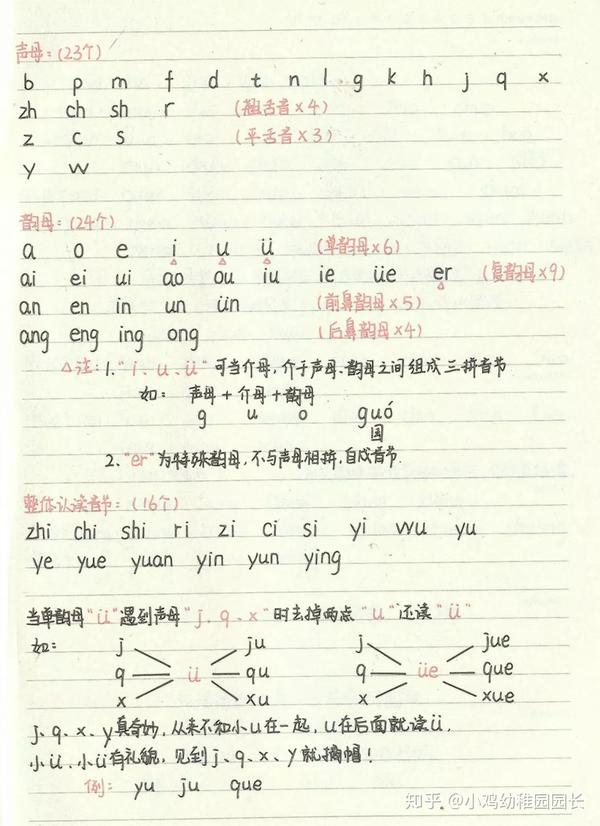 声母：(23个)
b p m f d t n l g k h j q x
zh ch sh r (翘舌音×4)
z c s (平舌音×3)
y w
韵母：(24个)
a o e i u ü (单韵母×6)
ai ei ui ao ou iu ie üe er (复韵母×9)
an en in un ün (前鼻韵母×5)
ang eng ing ong (后鼻韵母×4)
△注：1."i、u、ü"可当介母，介于声母、韵母之间组成三拼音节
如：声母+介母+韵母
g u o guó
国
2."er"为特殊韵母，不与声母相拼，自成音节.
整体认读音节：(16个)
zhi chi shi ri zi ci si yi wu yu
ye yue yuan yin yun ying
当单韵母"ü"遇到声母"j、q、x"时去掉两点"u"还读"ü"
如：j ju j jue
q ü qu q üe que
x xu x xue
j、q、x、y真奇妙，从来不和小u在一起，u在后面就读ü.
小ü、小ü有礼貌，见到j、q、x、y就摘帽！
例：yu ju que
知乎 @小鸡幼稚园园长